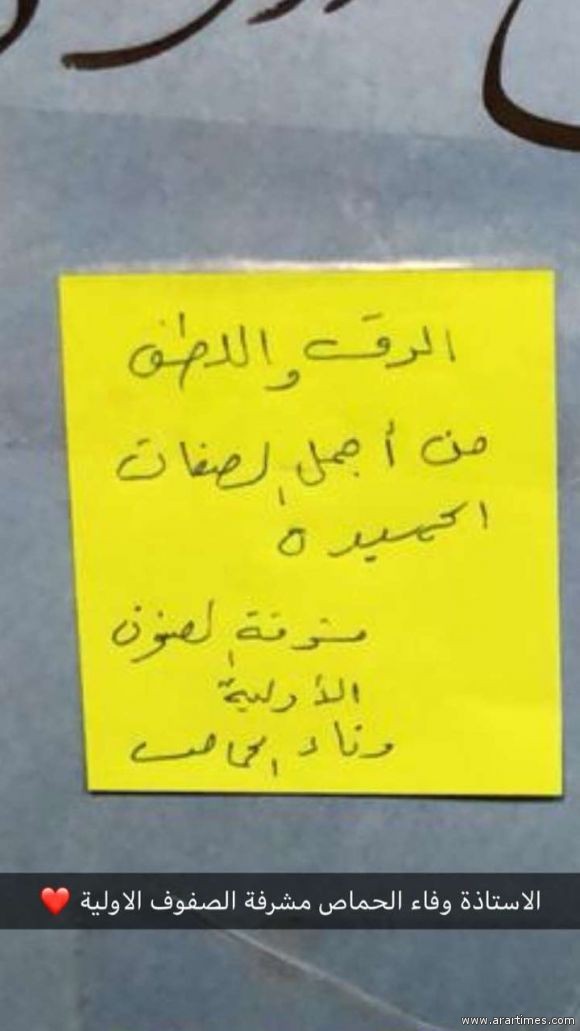 الرفق واللطف
من أجمل الصفات
الحميدة
مشرفة الصفوف
الأولية
وفاء الحماص
الاستاذة وفاء الحماص مشرفة الصفوف الاولية ❤️
www.arartimes.com